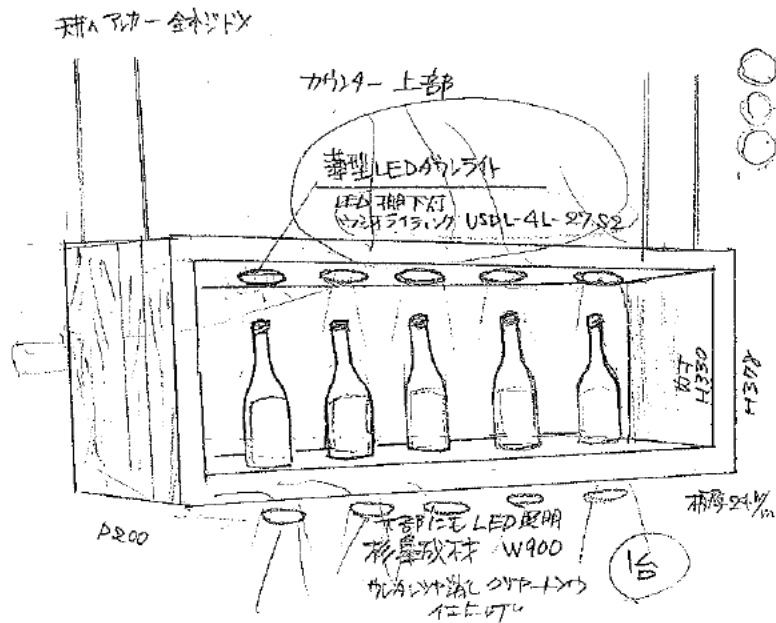 天井へアンカー 全ネジドメ
カウンター 上部
薄型LEDダウンライト
LED 棚下灯
ウシオライティング USDL-4L-27.S2
内寸
H330
H378
板厚24m/m
D200
下部にも LED 照明
杉集成材 W900
ウレタンツヤ消し クリヤートソウ
1台